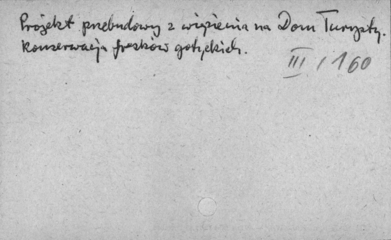 Projekt przebudowy z więzienia na Dom Turysty.
Konserwacja fresków gotyckich.
III / 160